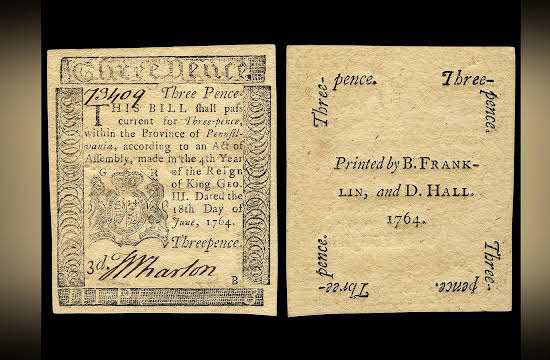 Three Pence.
73409 Three Pence.
THIS BILL shall pass
current for Three-pence,
within the Province of Pennsil-
vania, according to an Act of
Assembly, made in the 4th Year
G R of the Reign
of King GEO.
III. Dated the
18th Day of
June, 1764.
Threepence.
3d. Wharton
B
Three-pence.
Three-pence.
Printed by B. FRANK-
LIN, and D. HALL.
1764.
Three-pence.
Three-pence.